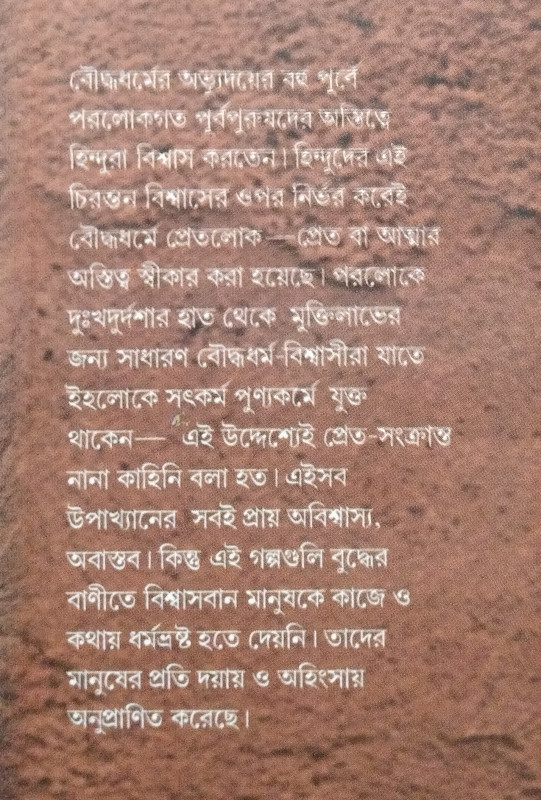 বৌদ্ধধর্মের অভ্যুদয়ের বহু পূর্বে
পরলোকগত পূর্বপুরুষদের অস্তিত্বে
হিন্দুরা বিশ্বাস করতেন। হিন্দুদের এই
চিরন্তন বিশ্বাসের ওপর নির্ভর করেই
বৌদ্ধধর্মে প্রেতলোক—প্রেত বা আত্মার
অস্তিত্ব স্বীকার করা হয়েছে। পরলোকে
দুঃখদুর্দশার হাত থেকে মুক্তিলাভের
জন্য সাধারণ বৌদ্ধধর্ম-বিশ্বাসীরা যাতে
ইহলোকে সৎকর্ম পুণ্যকর্মে যুক্ত
থাকেন— এই উদ্দেশ্যেই প্রেত-সংক্রান্ত
নানা কাহিনি বলা হত। এইসব
উপাখ্যানের সবই প্রায় অবিশ্বাস্য,
অবাস্তব। কিন্তু এই গল্পগুলি বুদ্ধের
বাণীতে বিশ্বাসবান মানুষকে কাজে ও
কথায় ধর্মভ্রষ্ট হতে দেয়নি। তাদের
মানুষের প্রতি দয়ায় ও অহিংসায়
অনুপ্রাণিত করেছে।